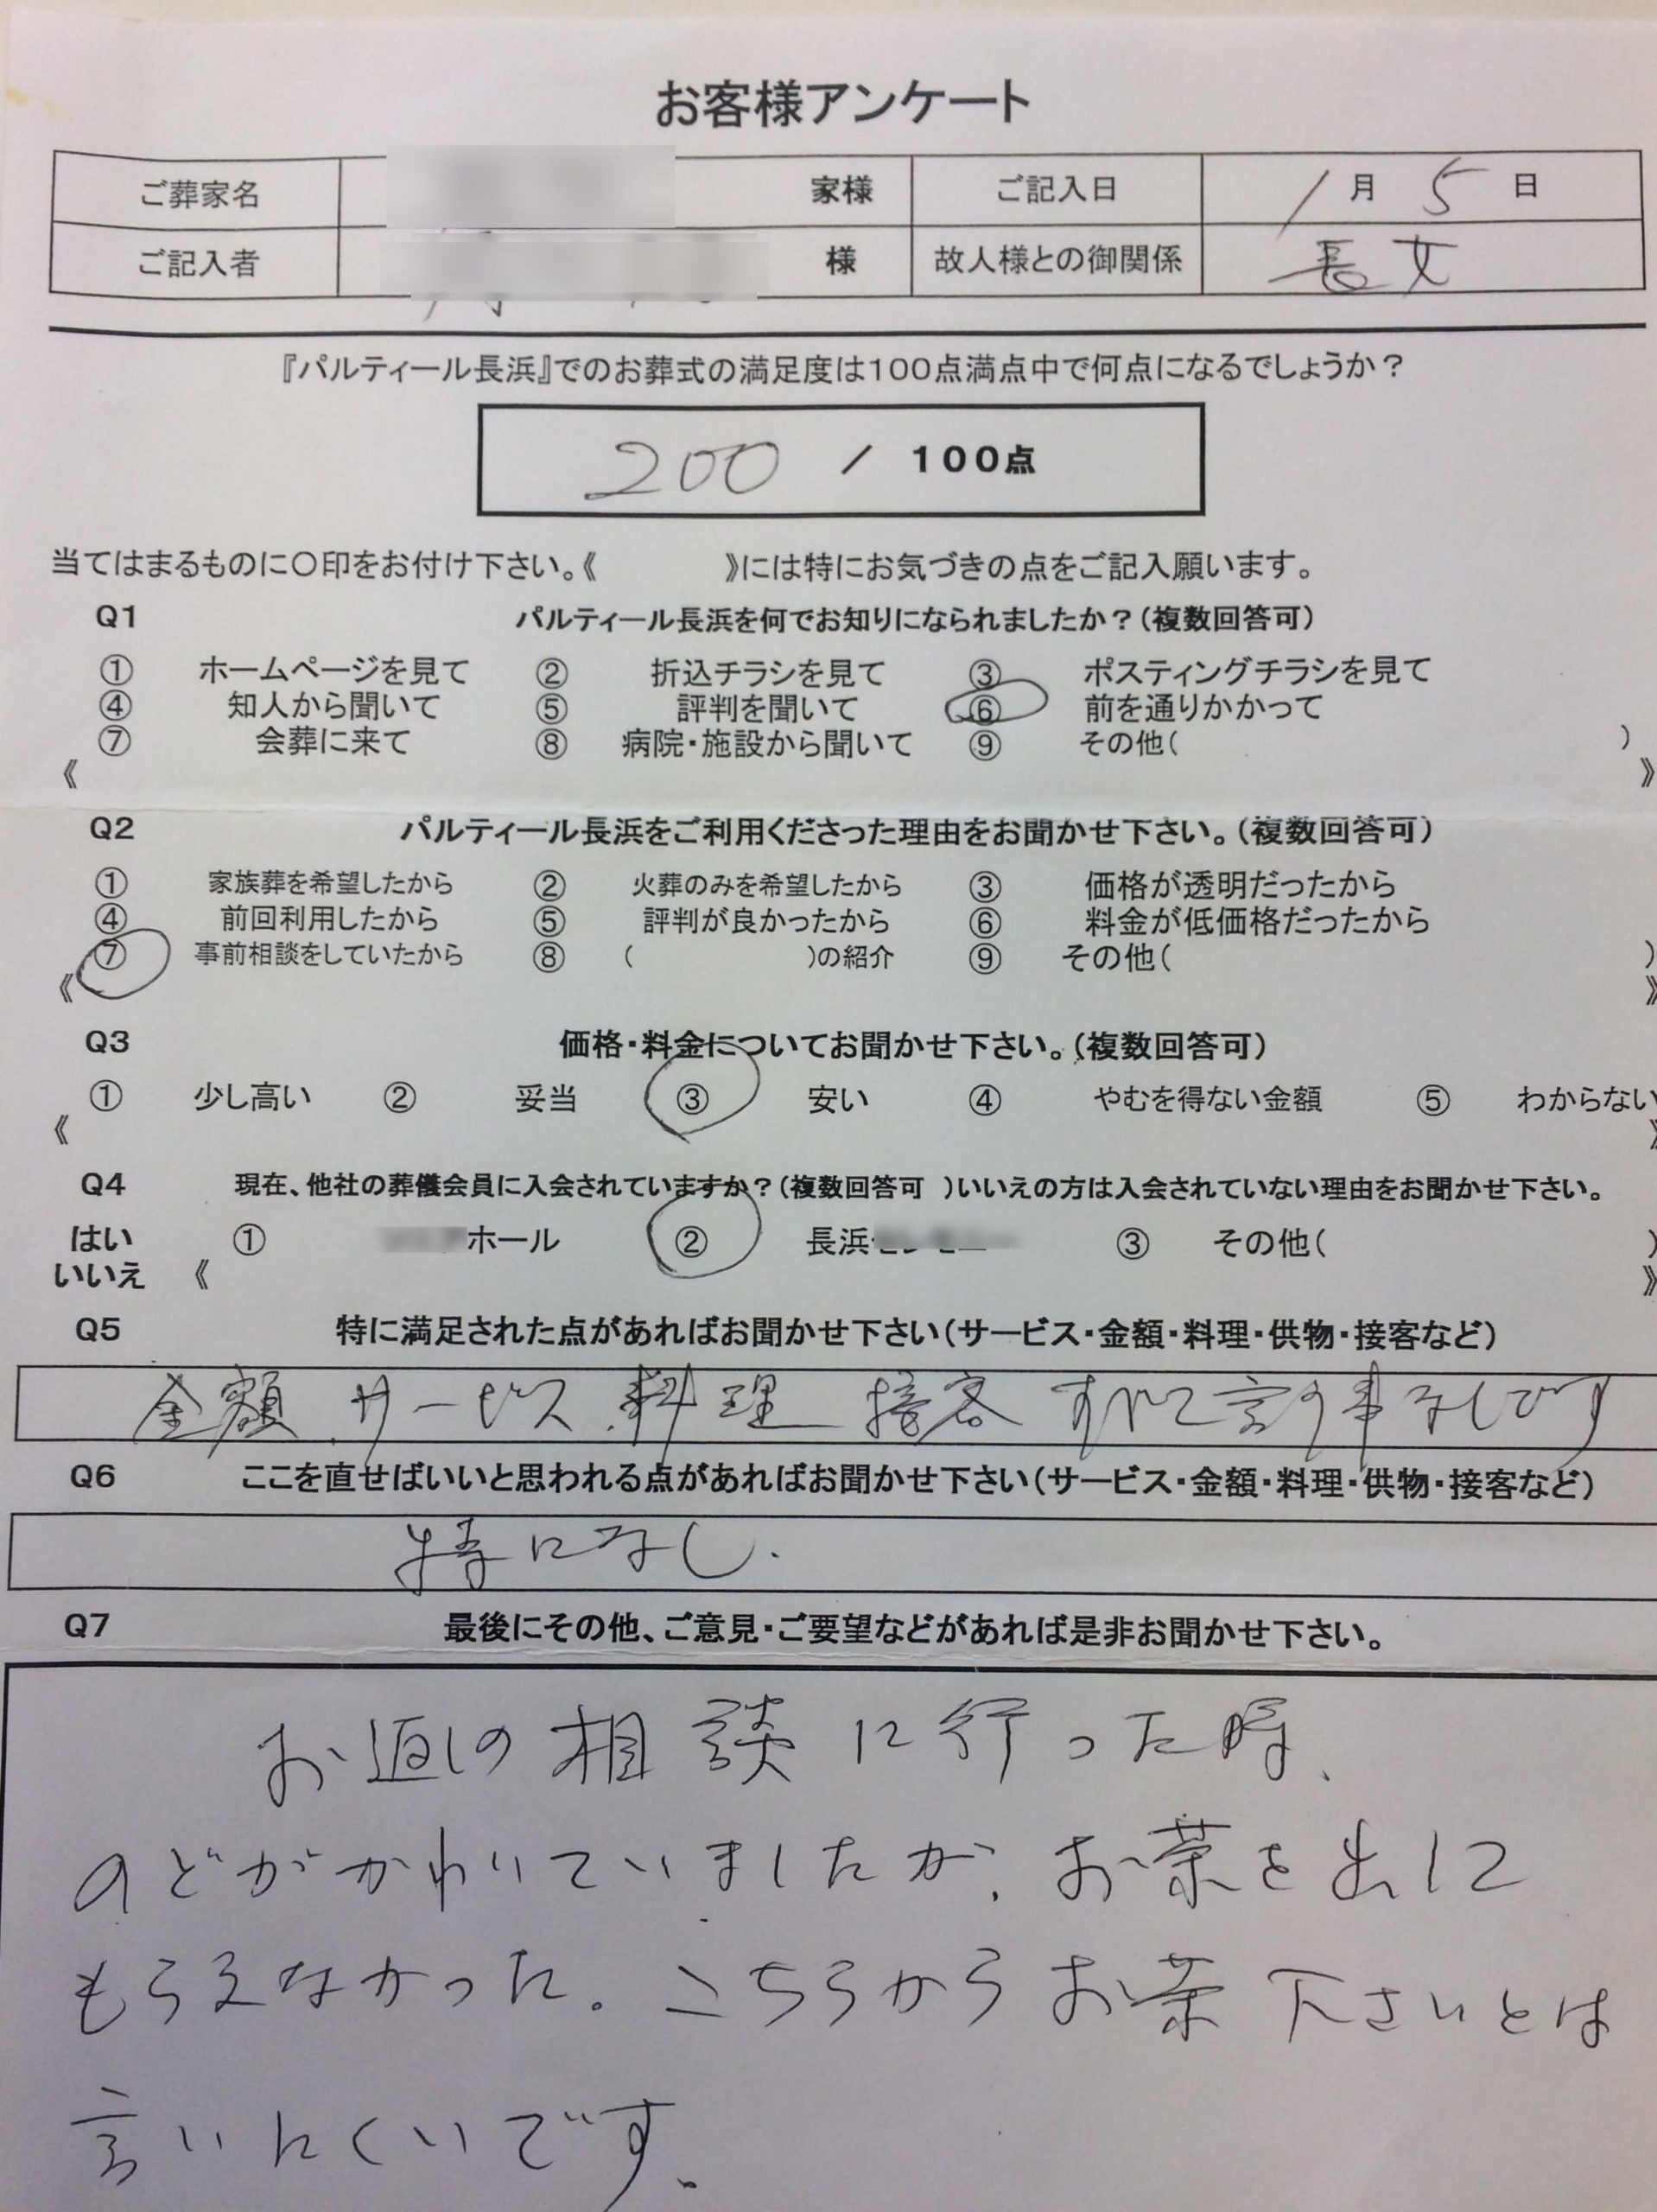 お客様アンケート
ご葬家名 家様 ご記入日 1月5日
ご記入者 様 故人様との御関係 長女
『パルティール長浜』でのお葬式の満足度は100点満点中で何点になるでしょうか？
200 / 100点
当てはまるものに〇印をお付け下さい。《 》には特にお気づきの点をご記入願います。
Q1 パルティール長浜を何でお知りになられましたか？（複数回答可）
① ホームページを見て ② 折込チラシを見て ③ ポスティングチラシを見て
④ 知人から聞いて ⑤ 評判を聞いて ⑥ 前を通りかかって
⑦ 会葬に来て ⑧ 病院・施設から聞いて ⑨ その他（ ）
《 》
Q2 パルティール長浜をご利用くださった理由をお聞かせ下さい。（複数回答可）
① 家族葬を希望したから ② 火葬のみを希望したから ③ 価格が透明だったから
④ 前回利用したから ⑤ 評判が良かったから ⑥ 料金が低価格だったから
⑦ 事前相談をしていたから ⑧ （ ）の紹介 ⑨ その他（ ）
《 》
Q3 価格・料金についてお聞かせ下さい。（複数回答可）
① 少し高い ② 妥当 ③ 安い ④ やむを得ない金額 ⑤ わからない
《 》
Q4 現在、他社の葬儀会員に入会されていますか？（複数回答可 ）いいえの方は入会されていない理由をお聞かせ下さい。
はい ① ホール ② 長浜 ③ その他（ ）
いいえ 《 》
Q5 特に満足された点があればお聞かせ下さい（サービス・金額・料理・供物・接客など）
金額 サービス 料理 接客 すべて言う事なしです
Q6 ここを直せばいいと思われる点があればお聞かせ下さい（サービス・金額・料理・供物・接客など）
特になし．
Q7 最後にその他、ご意見・ご要望などがあれば是非お聞かせ下さい。
お返しの相談に行った時、
のどがかわいていましたが、お茶を出して
もらえなかった。こちらからお茶下さいとは
言いにくいです。